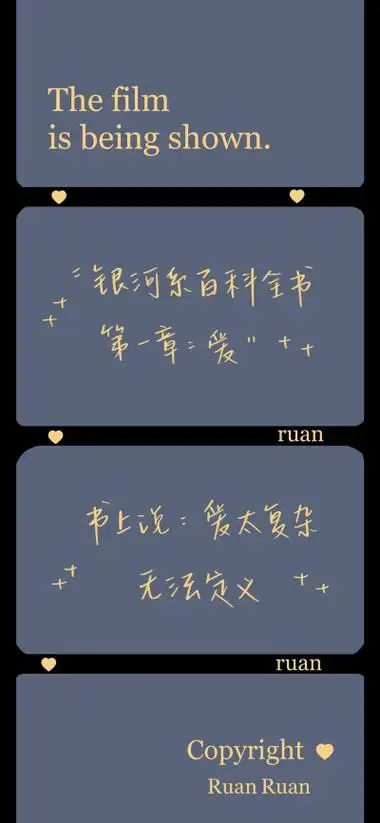 The film
is being shown.
"银河系百科全书
第一章:爱"
ruan
书上说:爱太复杂
无法定义
ruan
Copyright
Ruan Ruan